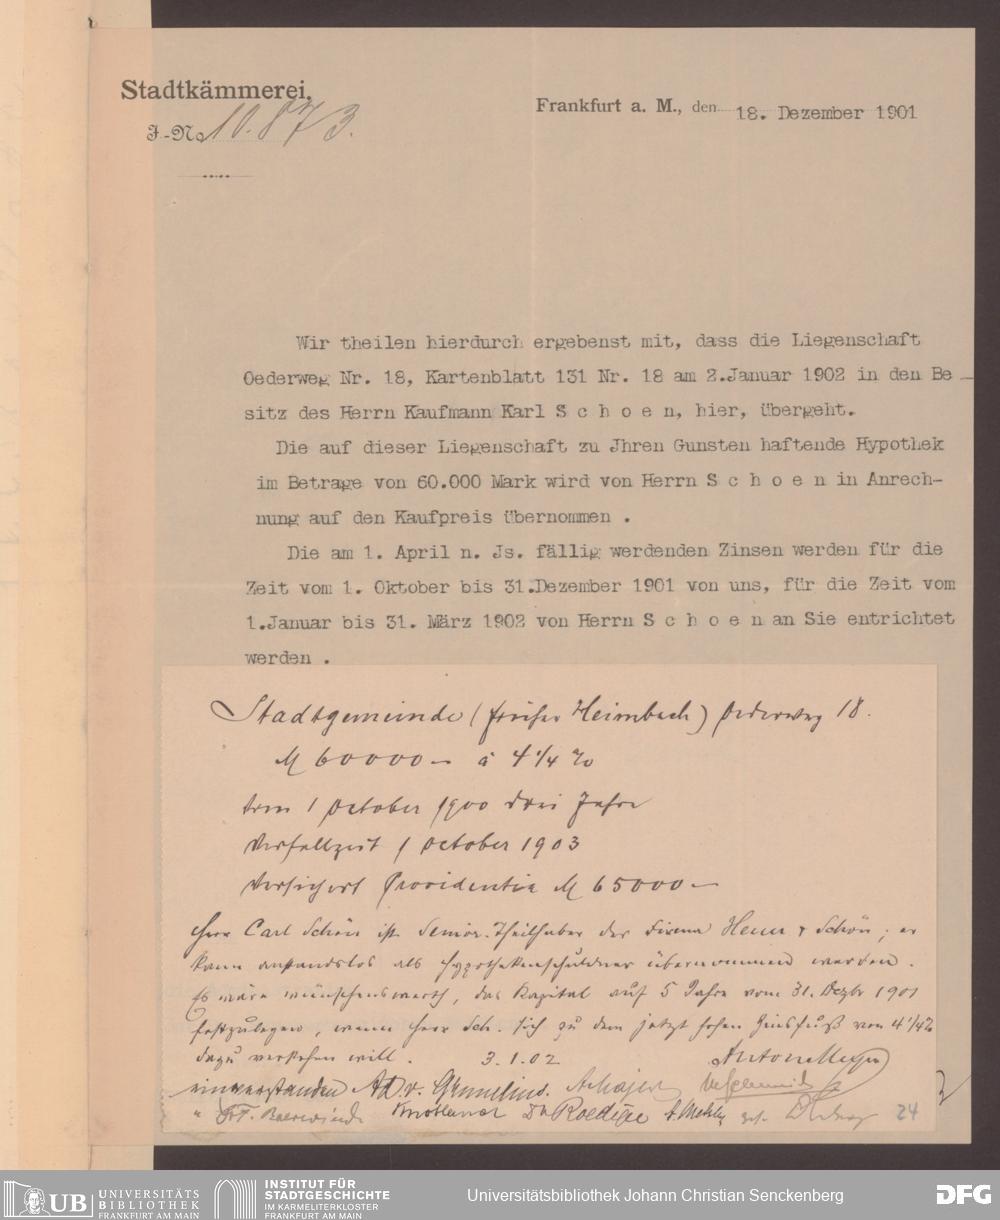 Stadtkämmerei,
J.-No 10.873.
Frankfurt a. M., den 18. Dezember 1901
Wir theilen hierdurch ergebenst mit, dass die Liegenschaft
Oederweg Nr. 18, Kartenblatt 131 Nr. 18 am 2.Januar 1902 in den Be-
sitz des Herrn Kaufmann Karl S c h o e n, hier, übergeht.
Die auf dieser Liegenschaft zu Jhren Gunsten haftende Hypothek
im Betrage von 60.000 Mark wird von Herrn S c h o e n in Anrech-
nung auf den Kaufpreis übernommen .
Die am 1. April n. Js. fällig werdenden Zinsen werden für die
Zeit vom 1. Oktober bis 31.Dezember 1901 von uns, für die Zeit vom
1.Januar bis 31. März 1902 von Herrn S c h o e n an Sie entrichtet
werden .
Stadtgemeinde (früher Heimbach) Oederweg 18.
M 60000 — à 4 1/4 %
vom 1 October 1900 drei Jahre
Verfallzeit 1 October 1903
Versichert Providentia M 65000 —
Herr Carl Schön ist Senior-Theilhaber der Firma & Schön; er
kann anstandslos als Hypothekenschuldner übernommen werden.
Es wäre wünschenswerth, das Kapital auf 5 Jahre vom 31. Dezbr 1901
festzulegen, wenn Herr Sch. sich zu dem jetzt hohen Zinsfuß von 4 1/4 %
dazu verstehen will. 3.1.02 Anton Meyer
einverstanden Ad. v. Gemelino.
" Dr Roediger
24
UB UNIVERSITÄTS
BIBLIOTHEK
FRANKFURT AM MAIN
INSTITUT FÜR
STADTGESCHICHTE
IM KARMELITERKLOSTER
FRANKFURT AM MAIN
Universitätsbibliothek Johann Christian Senckenberg
DFG